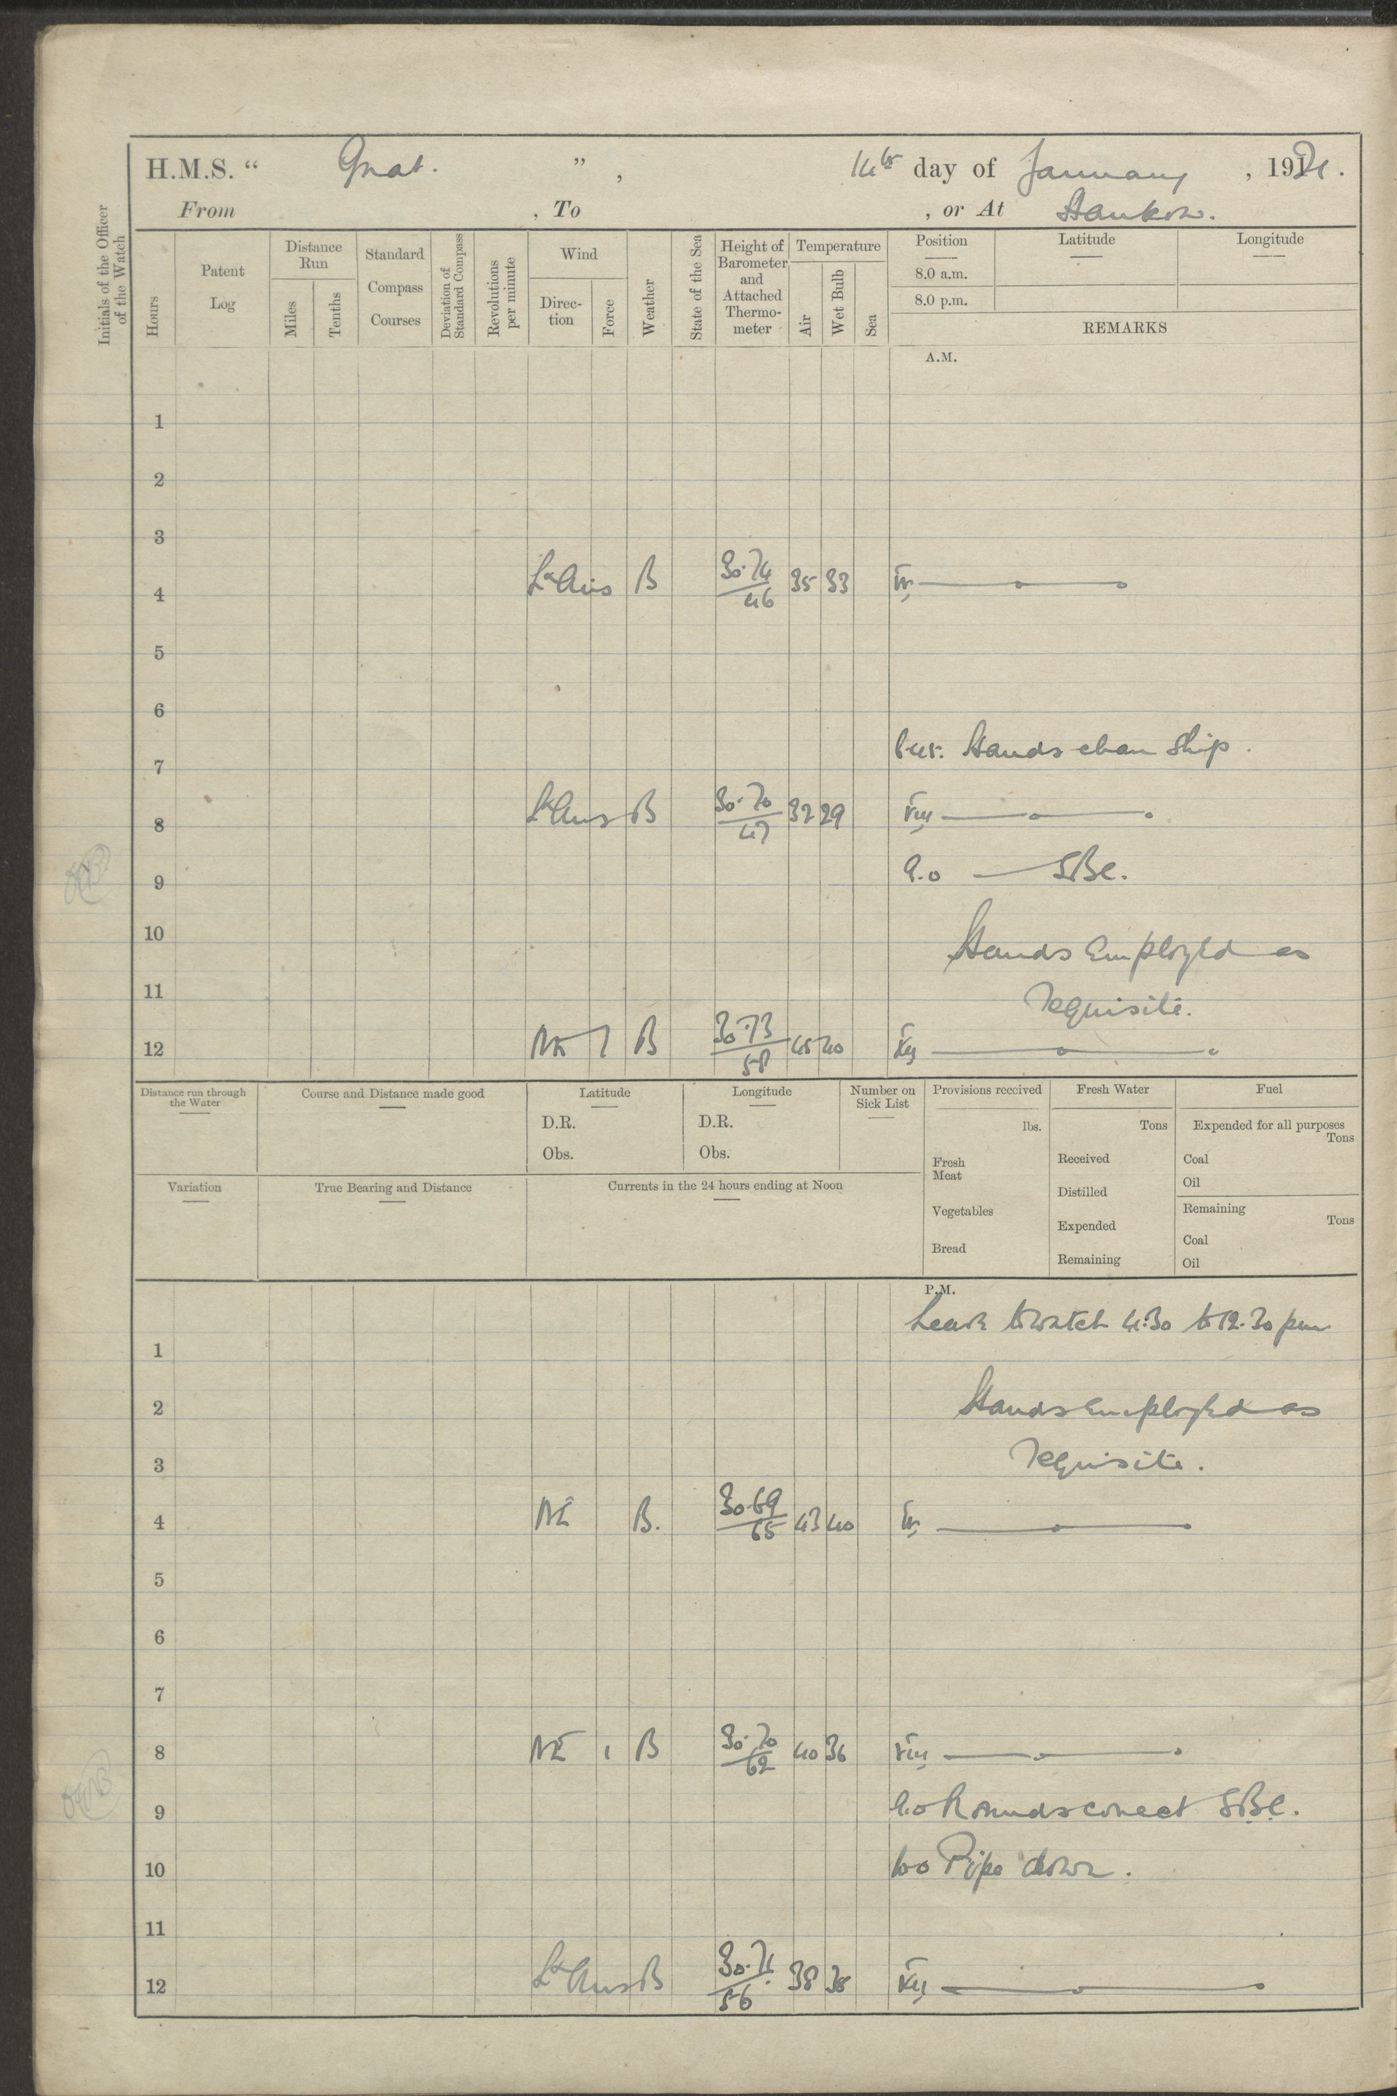 H.M.S. “ Gnat. ” , 14th day of January , 1921.
From , To , or At Hankow.
Initials of the Officer of the Watch
Hours
Patent Log
Distance Run
Miles
Tenths
Standard Compass Courses
Deviation of Standard Compass
Revolutions per minute
Wind
Direction
Force
Weather
State of the Sea
Height of Barometer and Attached Thermometer
Temperature
Air
Wet Bulb
Sea
Position
Latitude
Longitude
8.0 a.m.
8.0 p.m.
REMARKS
A.M.
1
2
3
4 Lt Airs B 30.74 46 35 33 IV
5
6
Hands clean Ship.
7
8 Lt Airs B 30.70 47 32 29 VIII
9.0 SBC.
9
10
Hands Employed as
11
requisite.
12 NE 1 B 30.73 58 45 40 XII
Distance run through the Water
Course and Distance made good
Latitude
D.R.
Obs.
Longitude
D.R.
Obs.
Number on Sick List
Provisions received
lbs.
Fresh Meat
Vegetables
Bread
Fresh Water
Tons
Received
Distilled
Expended
Remaining
Fuel
Expended for all purposes
Tons
Coal
Oil
Remaining
Tons
Coal
Oil
Variation
True Bearing and Distance
Currents in the 24 hours ending at Noon
P.M.
Leave to watch 4.30 to 12.30 pm
1
2 Hands employed as
3 requisite.
4 NE B. 30.69 65 43 40 IV
5
6
7
8 NE 1 B 30.70 62 40 36 VIII
9 9.0 Rounds correct SBC.
10 10.0 Pipe down.
11
12 Lt Airs B 56 38 XII